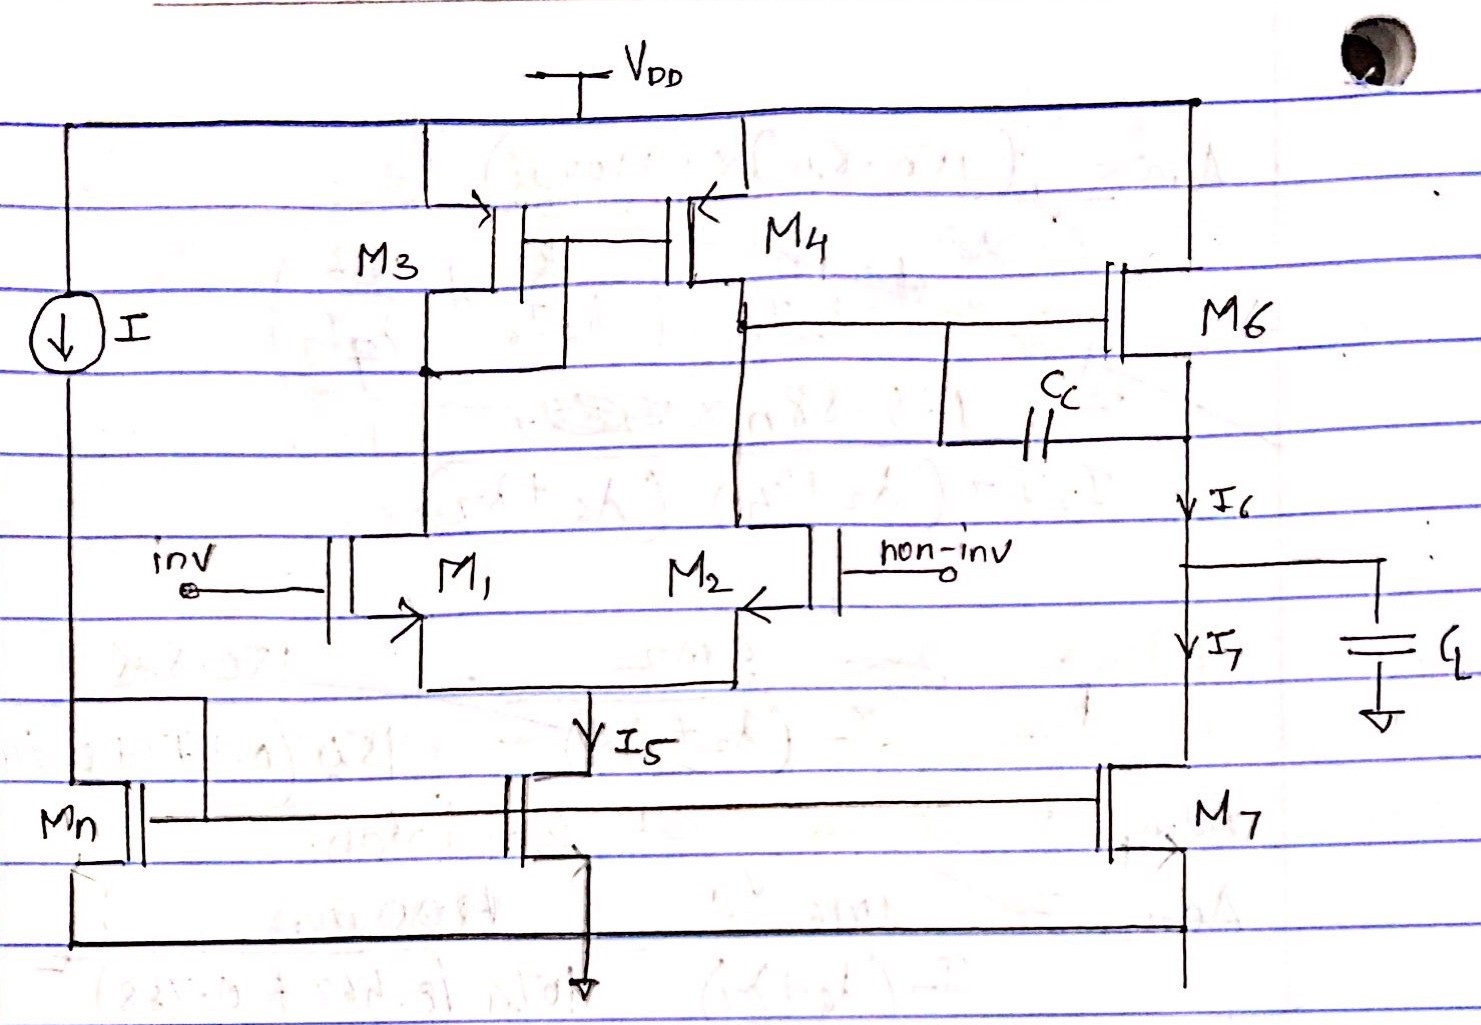 VDD
M3
M4
I
M6
Cc
I6
inv
M1
M2
non-inv
I7
CL
I5
Mn
M7